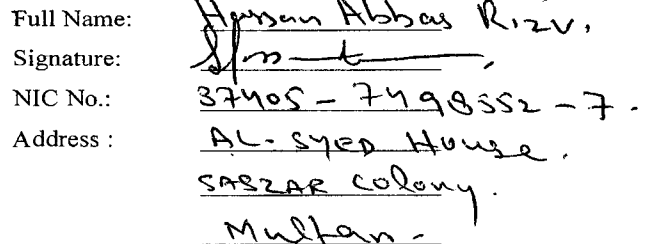 Full Name: Hassan Abbas Rizvi
Signature:
NIC No.: 37405-7498552-7.
Address : AL-SYED House.
SABZAR Colony.
Multan-